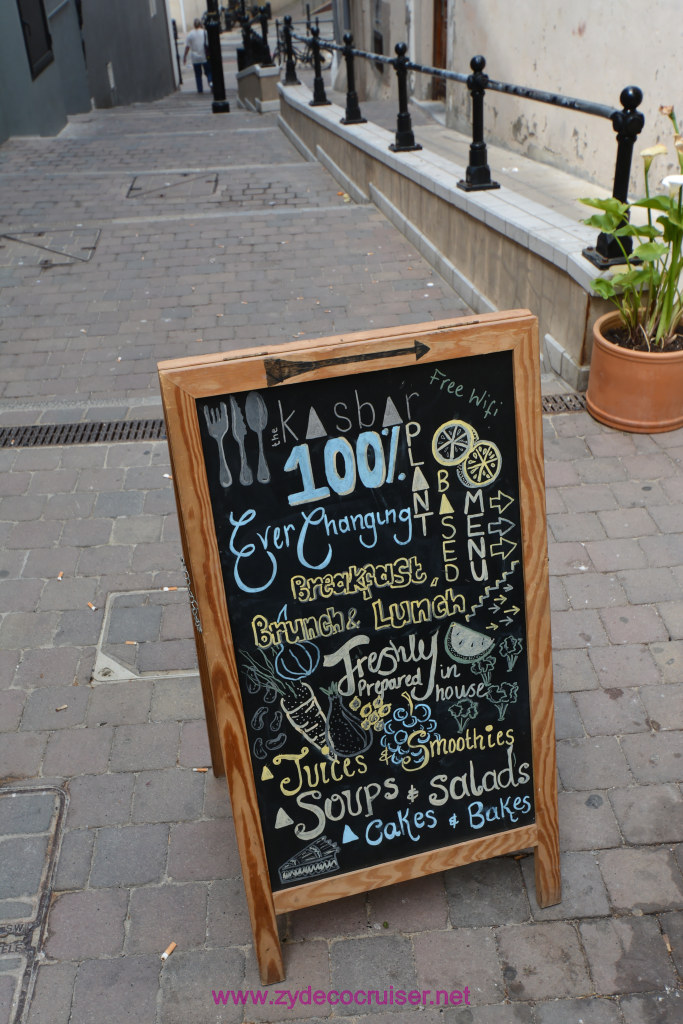 the KASBAR
Free Wifi
100%
PLANT
BASED
MENU
Ever Changing
Breakfast,
Brunch & Lunch
Freshly
Prepared in
house
Juices & Smoothies
Soups & Salads
Cakes & Bakes
www.zydecocruiser.net